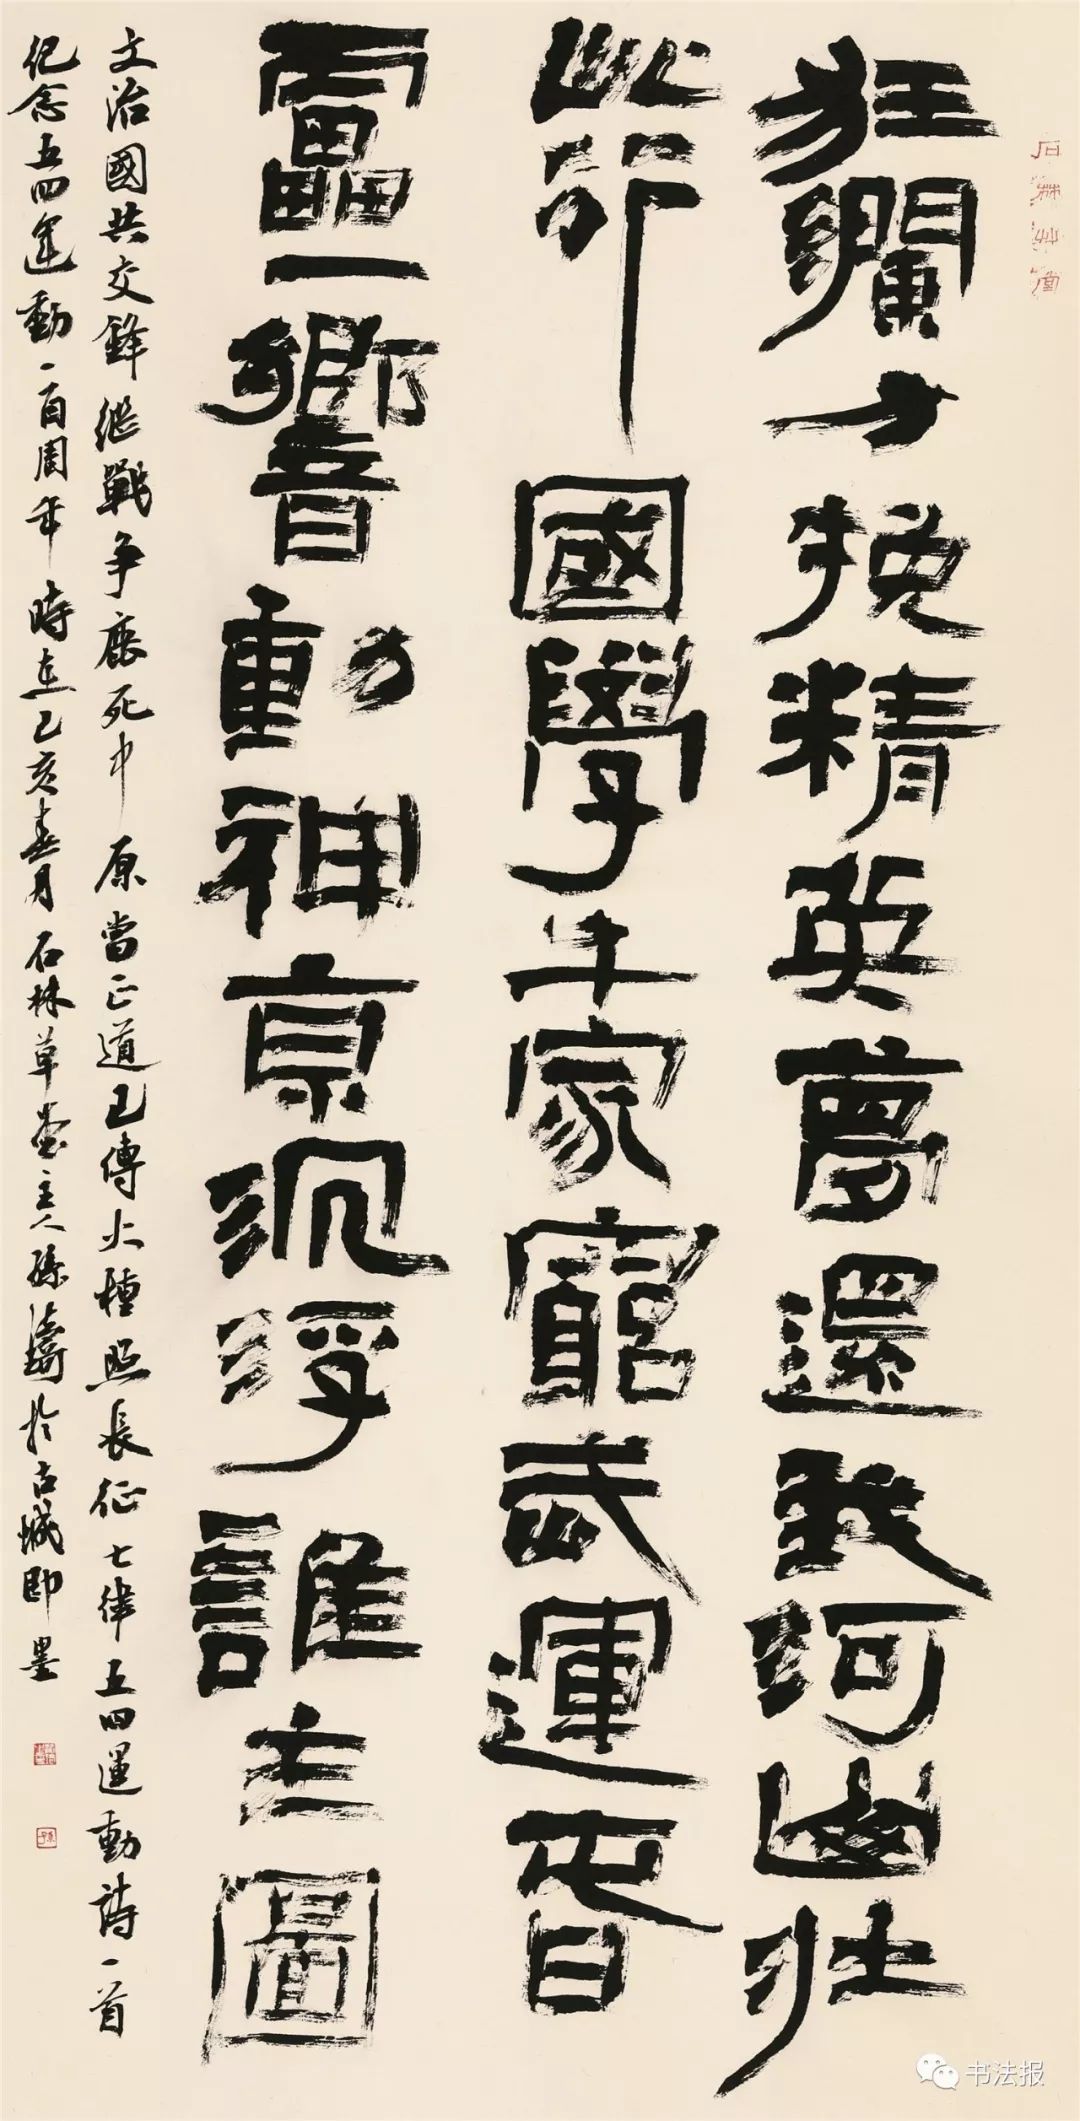 石林艸堂
狂瀾力挽精英夢還我河山壯
此行國學生家窮武運春
雷一響動神京沉浮誰主圖
文治國共交鋒繼戰爭鹿死中原當正道已傳火種照長征七律五四運動詩一首
紀念五四運動一百周年時在己亥春月石林草堂主人孫濤於古城即墨
书法报